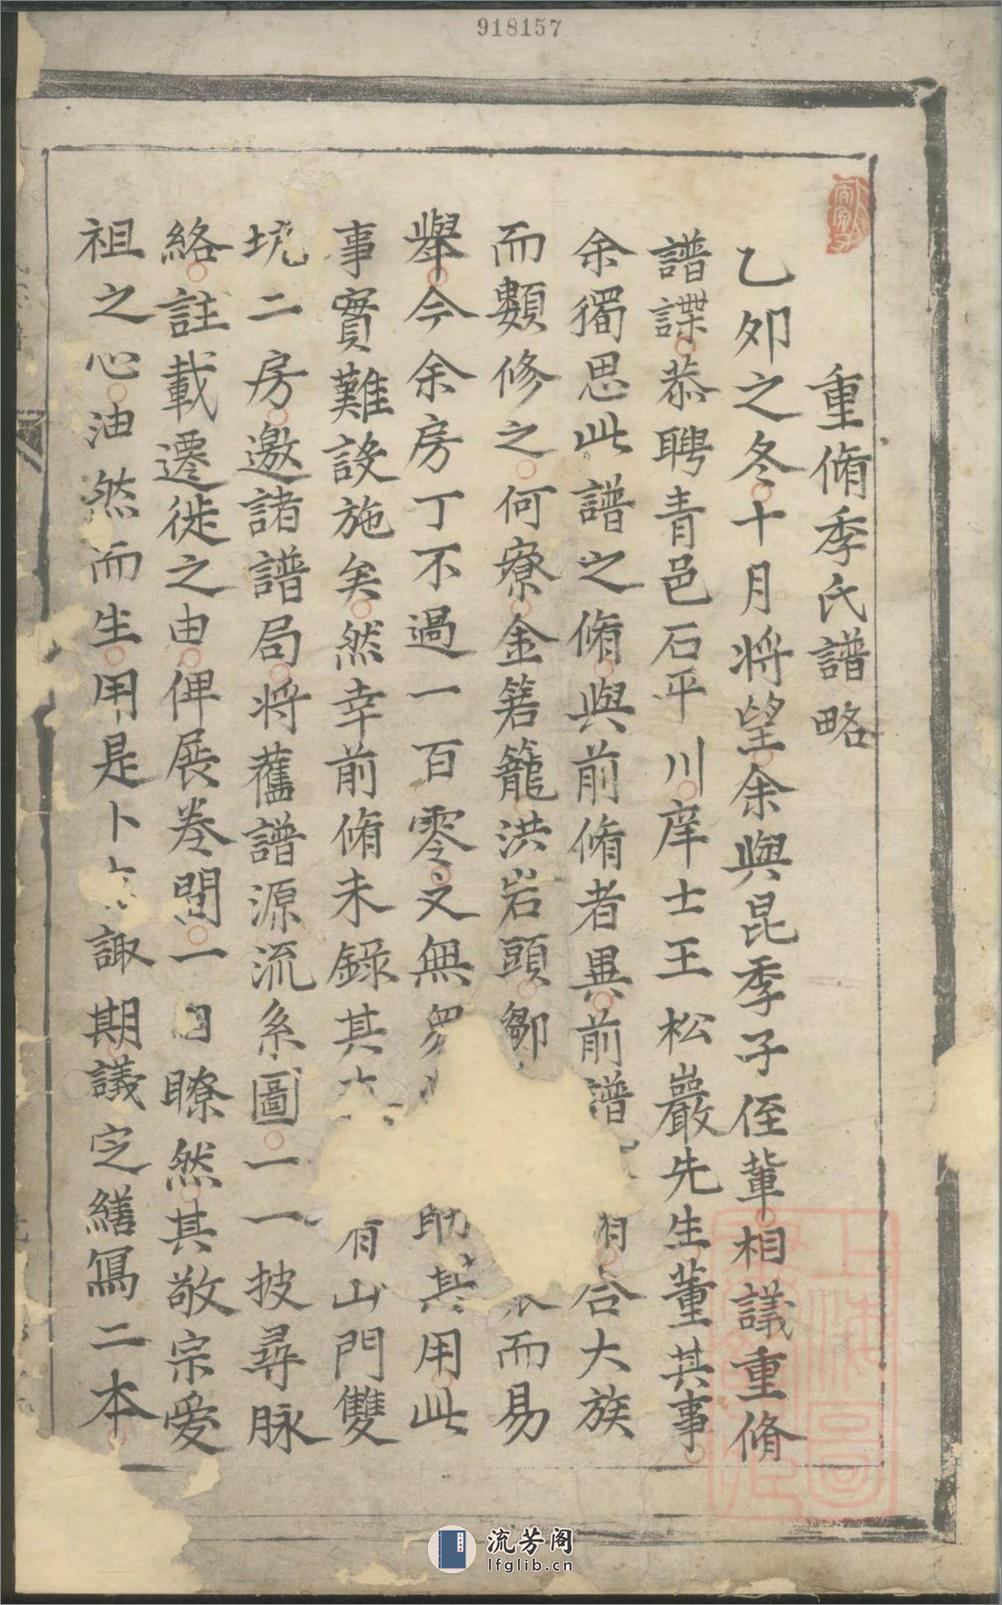 918157
重脩季氏譜略
乙夘之冬十月將望余與昆季子侄軰相議重脩
譜諜恭聘青邑石平川庠士王松巖先生董其事
余獨思此譜之脩與前脩者異前譜合大族
而類修之何寮金箬籠洪岩頭鄒而易
舉今余房丁不過一百零又無助其用此
事實難設施矣然幸前脩未錄其有山門雙
坑二房邀諸譜局將舊譜源流系圖一一披尋脉
絡註載遷徙之由俾展卷閱一目瞭然其敬宗愛
祖之心油然而生用是卜諏期議定繕寫二本
上海圖書館藏
流芳阁
lfglib.cn